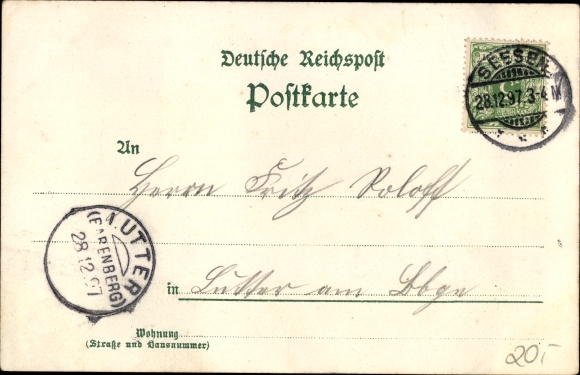 Deutsche Reichspost
Postkarte
SEESEN
28.12.97.3-4N
5
An
Herrn Fritz Roloff
LUTTER
(BARENBERG)
28.12.97
in Lutter am Bbge
Wohnung
(Straße und Hausnummer)
20,-